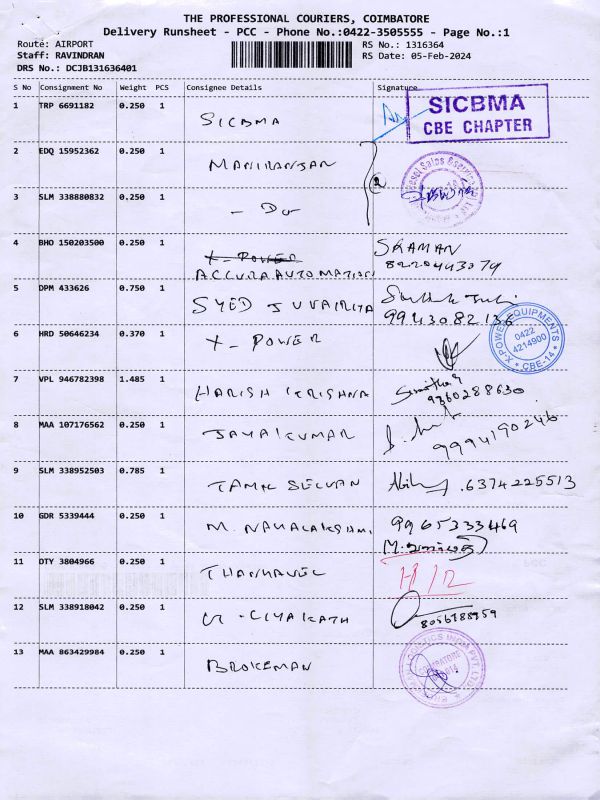 THE PROFESSIONAL COURIERS, COIMBATORE
Delivery Runsheet - PCC - Phone No.:0422-3505555 - Page No.:1
Route: AIRPORT RS No.: 1316364
Staff: RAVINDRAN RS Date: 05-Feb-2024
DRS No.: DCJB131636401
S No Consignment No Weight PCS Consignee Details Signature
1 TRP 6691182 0.250 1 SICBMA
SICBMA
CBE CHAPTER
2 EDQ 15952362 0.250 1 MANIRANJAN
3 SLM 338880832 0.250 1 - Do
4 BHO 150203500 0.250 1 X-POWER SRAMAN
ACCURA AUTOMATION 8220443079
5 DPM 433626 0.750 1 SYED JUVAIRIYA
9943082136
6 HRD 50646234 0.370 1 X-POWER
X-POWER EQUIPMENTS
0422
4214900
* CBE-14 *
7 VPL 946782398 1.485 1 HARISH KRISHNA
9360288630
8 MAA 107176562 0.250 1 JAYAKUMAR 9994190246
9 SLM 338952503 0.785 1 TAMIL SELVAN .6374225513
10 GDR 5339444 0.250 1 M. NAHALAKSHMI 9965333469
11 DTY 3804966 0.250 1 THANGAVEL
12 SLM 338918042 0.250 1
8056788959
13 MAA 863429984 0.250 1 BROKEMAN